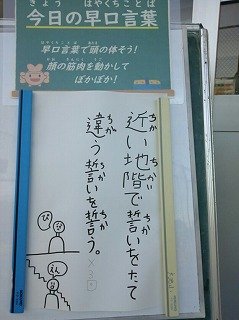 きょう はやくちことば
今日の早口言葉
はやくちことば あたま たいそう
早口言葉で頭の体そう!
かお きんにく うご
顔の筋肉を動かして
ぽかぽか!
ちか ちかい ちか
近い地階で誓いをたて
ちが ちか ちか
違う誓いを誓う。
×3回